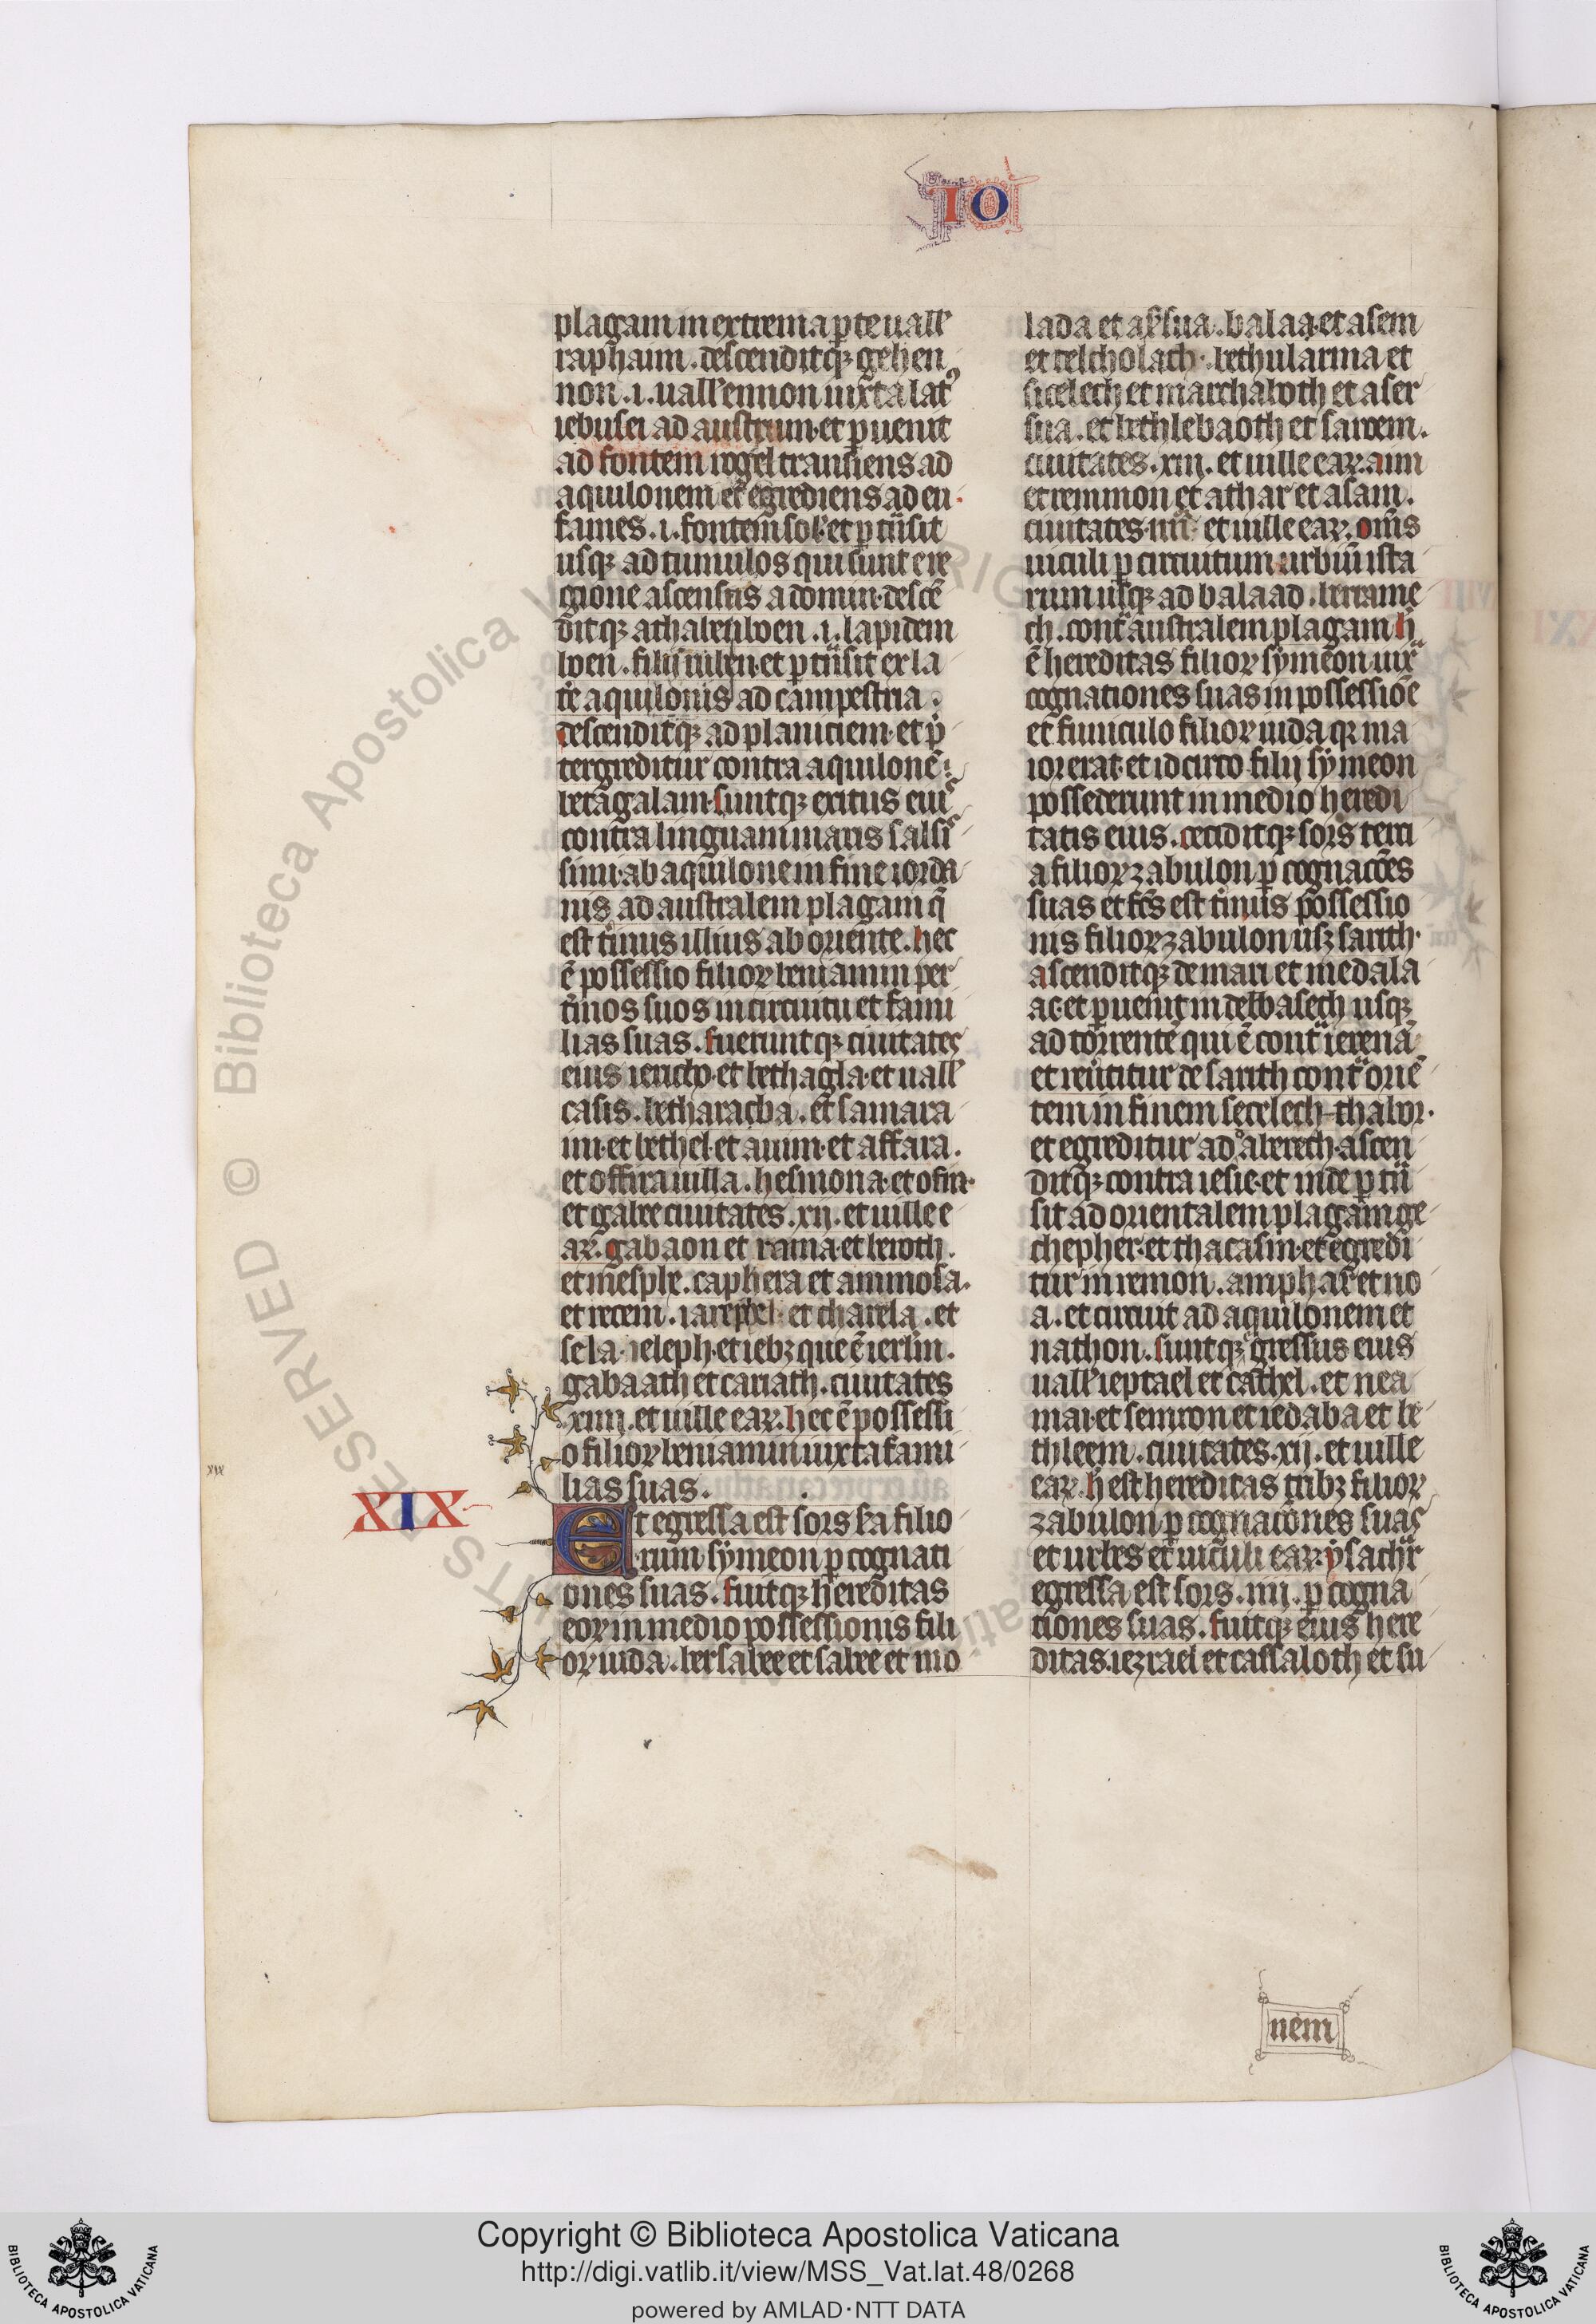 IO
plagam in extrema ꝑte uall̾
raphaim . descenditqꝫ gehen
non .i. uall̾ ennon iuxta lat᷒
iebusei ad austrum . et ꝑuenit
ad fontem rogel transiens ad
aquilonem et egrediens ad en
sames .i. fontem sol̾ et ꝑtͣsit
usqꝫ ad tumulos qui sunt e re
gione ascensus adomin . descē
ditqꝫ ad abenboen .i. lapidem
boen . filij ruben . et ꝑtͣsit ex la
tͤe aquilonis ad campestria .
descenditqꝫ ad planiciem . et p̃
tergreditur contra aquilonē
betagalam . suntqꝫ exitus eiuˢ
contra linguam maris salsiˢ
simi . ab aquilone in fine iorda
nis ad australem plagam q̄
est tͥmus illius ab oriente . hec
ē possessio filioꝝ beniamin per
tͥmos suos in circuitu et fami
lias suas . fueruntqꝫ ciuitates
eius iericho . et bethagla . et uall̾
casis . betharacba . et samara
im . et bethel . et auim . et affara .
et offira uilla . hesmona . et ofni .
et gabee ciuitates . xij . et uille e
aꝝ . gabaon et rama . et beroth .
et mesphe . caphera et ammosa .
et recem . iarephel . et tharela . et
sela . eleph . et iebꝫ que ē ierl̄m .
gabaath et cariath . ciuitates
xiiij . et uille eaꝝ . hec ē possessi
o filioꝝ beniamin iuxta fami
lias suas .
XIX
xix
Et egressa est sors sc̄a filio
rum symeon ꝑ cognati
ones suas . fuitqꝫ hereditas
eoꝝ in medio possessionis fili
oꝝ iuda . bersabee et sabee et mo
lada et asersua . balaa . et asem
et telcholath . bethularma et
sicelech et marchaboth et aser
sua . et bethlebaoth et saroem .
ciuitates . xiij . et uille eaꝝ . ann
et remmon et athar et asam .
ciuitates . iiij . et uille eaꝝ . om̄s
uiculi ꝑ circuitum urbiū ista
rum usqꝫ ad balaad . berrame
th . contͣ australem plagam h̄
ē hereditas filioꝝ symeon iuxͣ
cognationes suas in possessiōe
et funiculo filioꝝ iuda qꝛ ma
ior erat . et idcirco filij symeon
possederunt in medio heredi
tatis eius . ceciditqꝫ sors terci
a filioꝝ zabulon ꝑ cognaciōes
suas et fc̄s est tͥmus possessio
nis filioꝝ zabulon usꝫ sarith .
ascenditqꝫ de mari et medala
a . et ꝑuenit in debbasech usqꝫ
ad torrentē qui ē contͣ ierenā .
et reūtitur de sarith contͣ oriē
tem in finem secelech-thabor .
et egreditur ad aberech . ascen
ditqꝫ contra iesie . et inde ꝑtͣ
sit ad orientalem plagam ge
thepher . et thacasin . et egredi
tur in remon . amphar et no
a . et circuit ad aquilonem et
nathon . suntqꝫ egressus eius
uall̾ ieptael et cathel . et nea
mai . et semron et iedaba et be
thleem . ciuitates . xij . et uille
eaꝝ . h̄ est hereditas tribꝫ filioꝝ
zabulon ꝑ cognacōnes suas
et urbes et uiculi eaꝝ ysachͬ
egressa est sors . iiij . ꝑ cogna
tiones suas . fuitqꝫ eius here
ditas . iezrael et cassaloth et su
nem
© Biblioteca Apostolica Vaticana
RIGHTS RESERVED
Copyright © Biblioteca Apostolica Vaticana
http://digi.vatlib.it/view/MSS_Vat.lat.48/0268
powered by AMLAD·NTT DATA
BIBLIOTECA APOSTOLICA VATICANA
BIBLIOTECA APOSTOLICA VATICANA